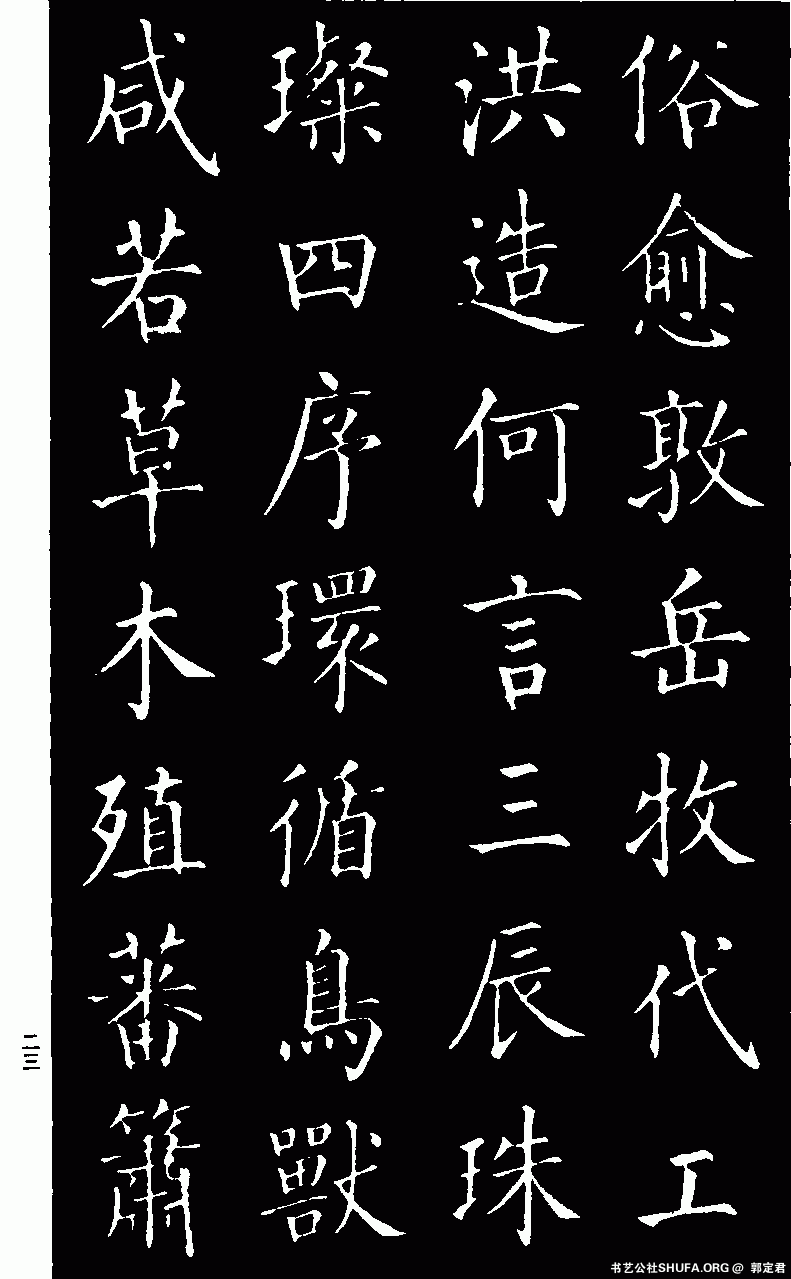 俗愈敦岳牧代工
洪造何言三辰珠
璨四序環循鳥獸
咸若草木殖蕃簫
二三
书艺公社SHUFA.ORG @ 郭定君